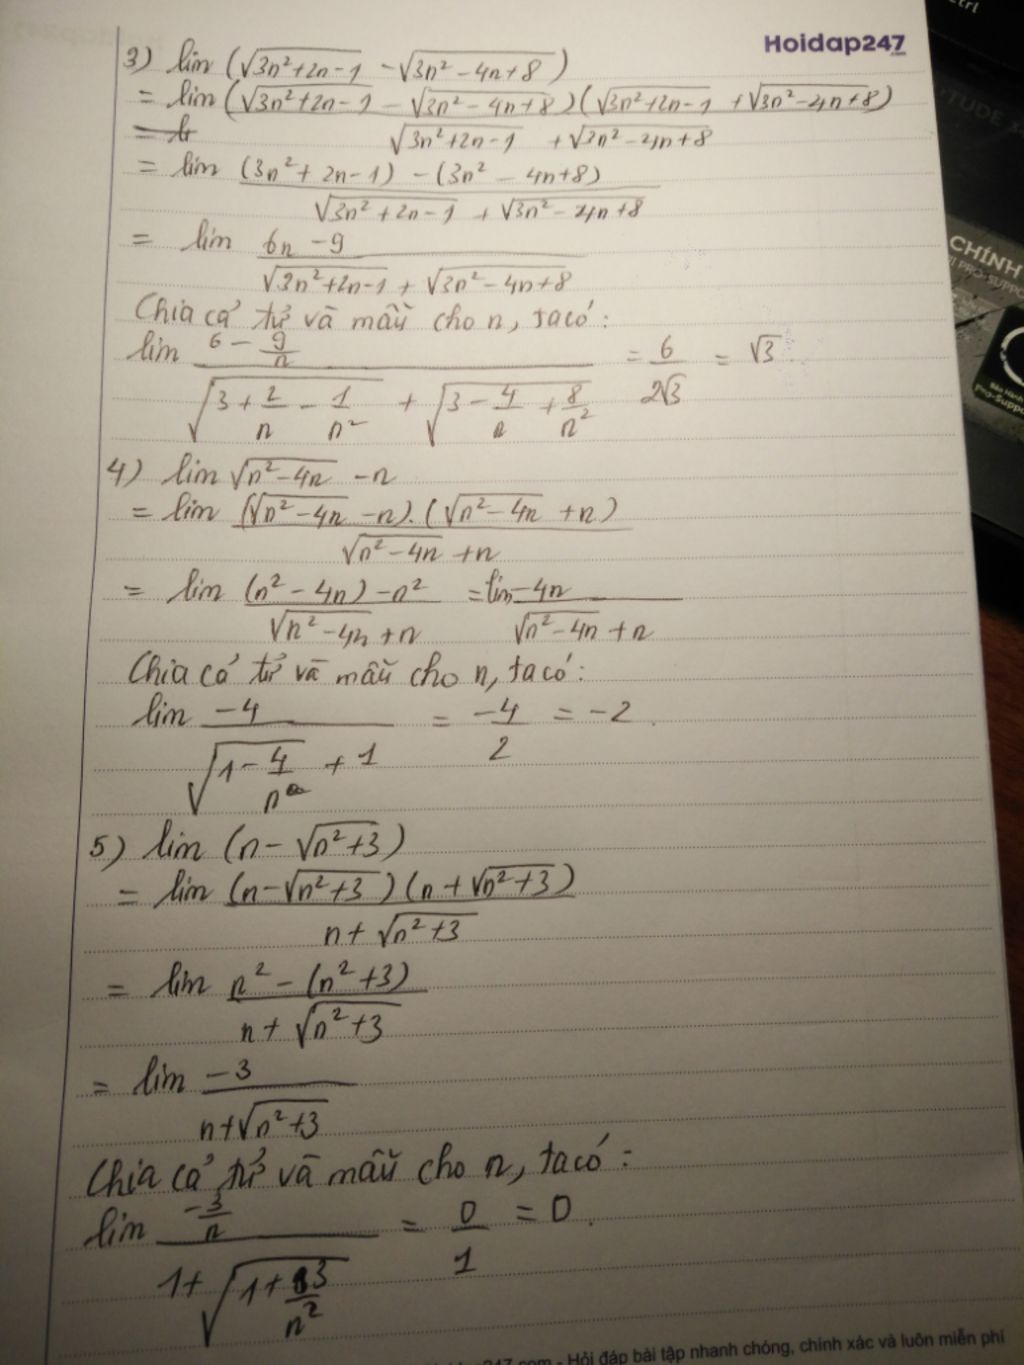 Hoidap247
.com
3) lim (√3n²+2n-1 - √3n²-4n+8)
= lim (√3n²+2n-1 - √3n²-4n+8)(√3n²+2n-1 + √3n²-4n+8)
√3n²+2n-1 + √3n²-4n+8
= lim (3n²+2n-1) - (3n²-4n+8)
√3n²+2n-1 + √3n²-4n+8
= lim 6n-9
√3n²+2n-1 + √3n²-4n+8
Chia cả tử và mẫu cho n, ta có:
lim 6 - 9/n = 6 = √3
√3+2/n-1/n² + √3-4/n+8/n² 2√3
4) lim √n²-4n - n
= lim (√n²-4n - n).(√n²-4n + n)
√n²-4n + n
= lim (n²-4n) - n² = lim -4n
√n²-4n + n √n²-4n + n
Chia cả tử và mẫu cho n, ta có:
lim -4 = -4 = -2.
√1-4/n + 1 2
5) lim (n - √n²+3)
= lim (n - √n²+3)(n + √n²+3)
n + √n²+3
= lim n² - (n²+3)
n + √n²+3
= lim -3
n + √n²+3
Chia cả tử và mẫu cho n, ta có:
lim -3/n = 0 = 0.
1 + √1+3/n² 1
.com - Hỏi đáp bài tập nhanh chóng, chính xác và luôn miễn phí
CHÍNH